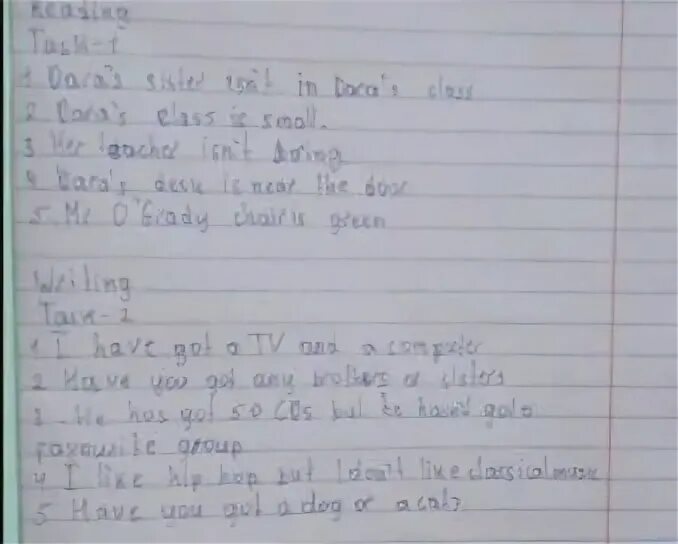 Reading
Task-1
1 Dara's sister isn't in Dara's class
2 Dara's class is small.
3 Her isn't
4 Dara's desk is near the door
5 Mr O'Grady chair is green
Writing
Task-2
1 I have got a TV and a computer
2 Have you got any brothers or sisters
3 He has got 50 CDs but he got a
favourite group
4 I like hip hop but I don't like classical music
5 Have you got a dog or a cat?